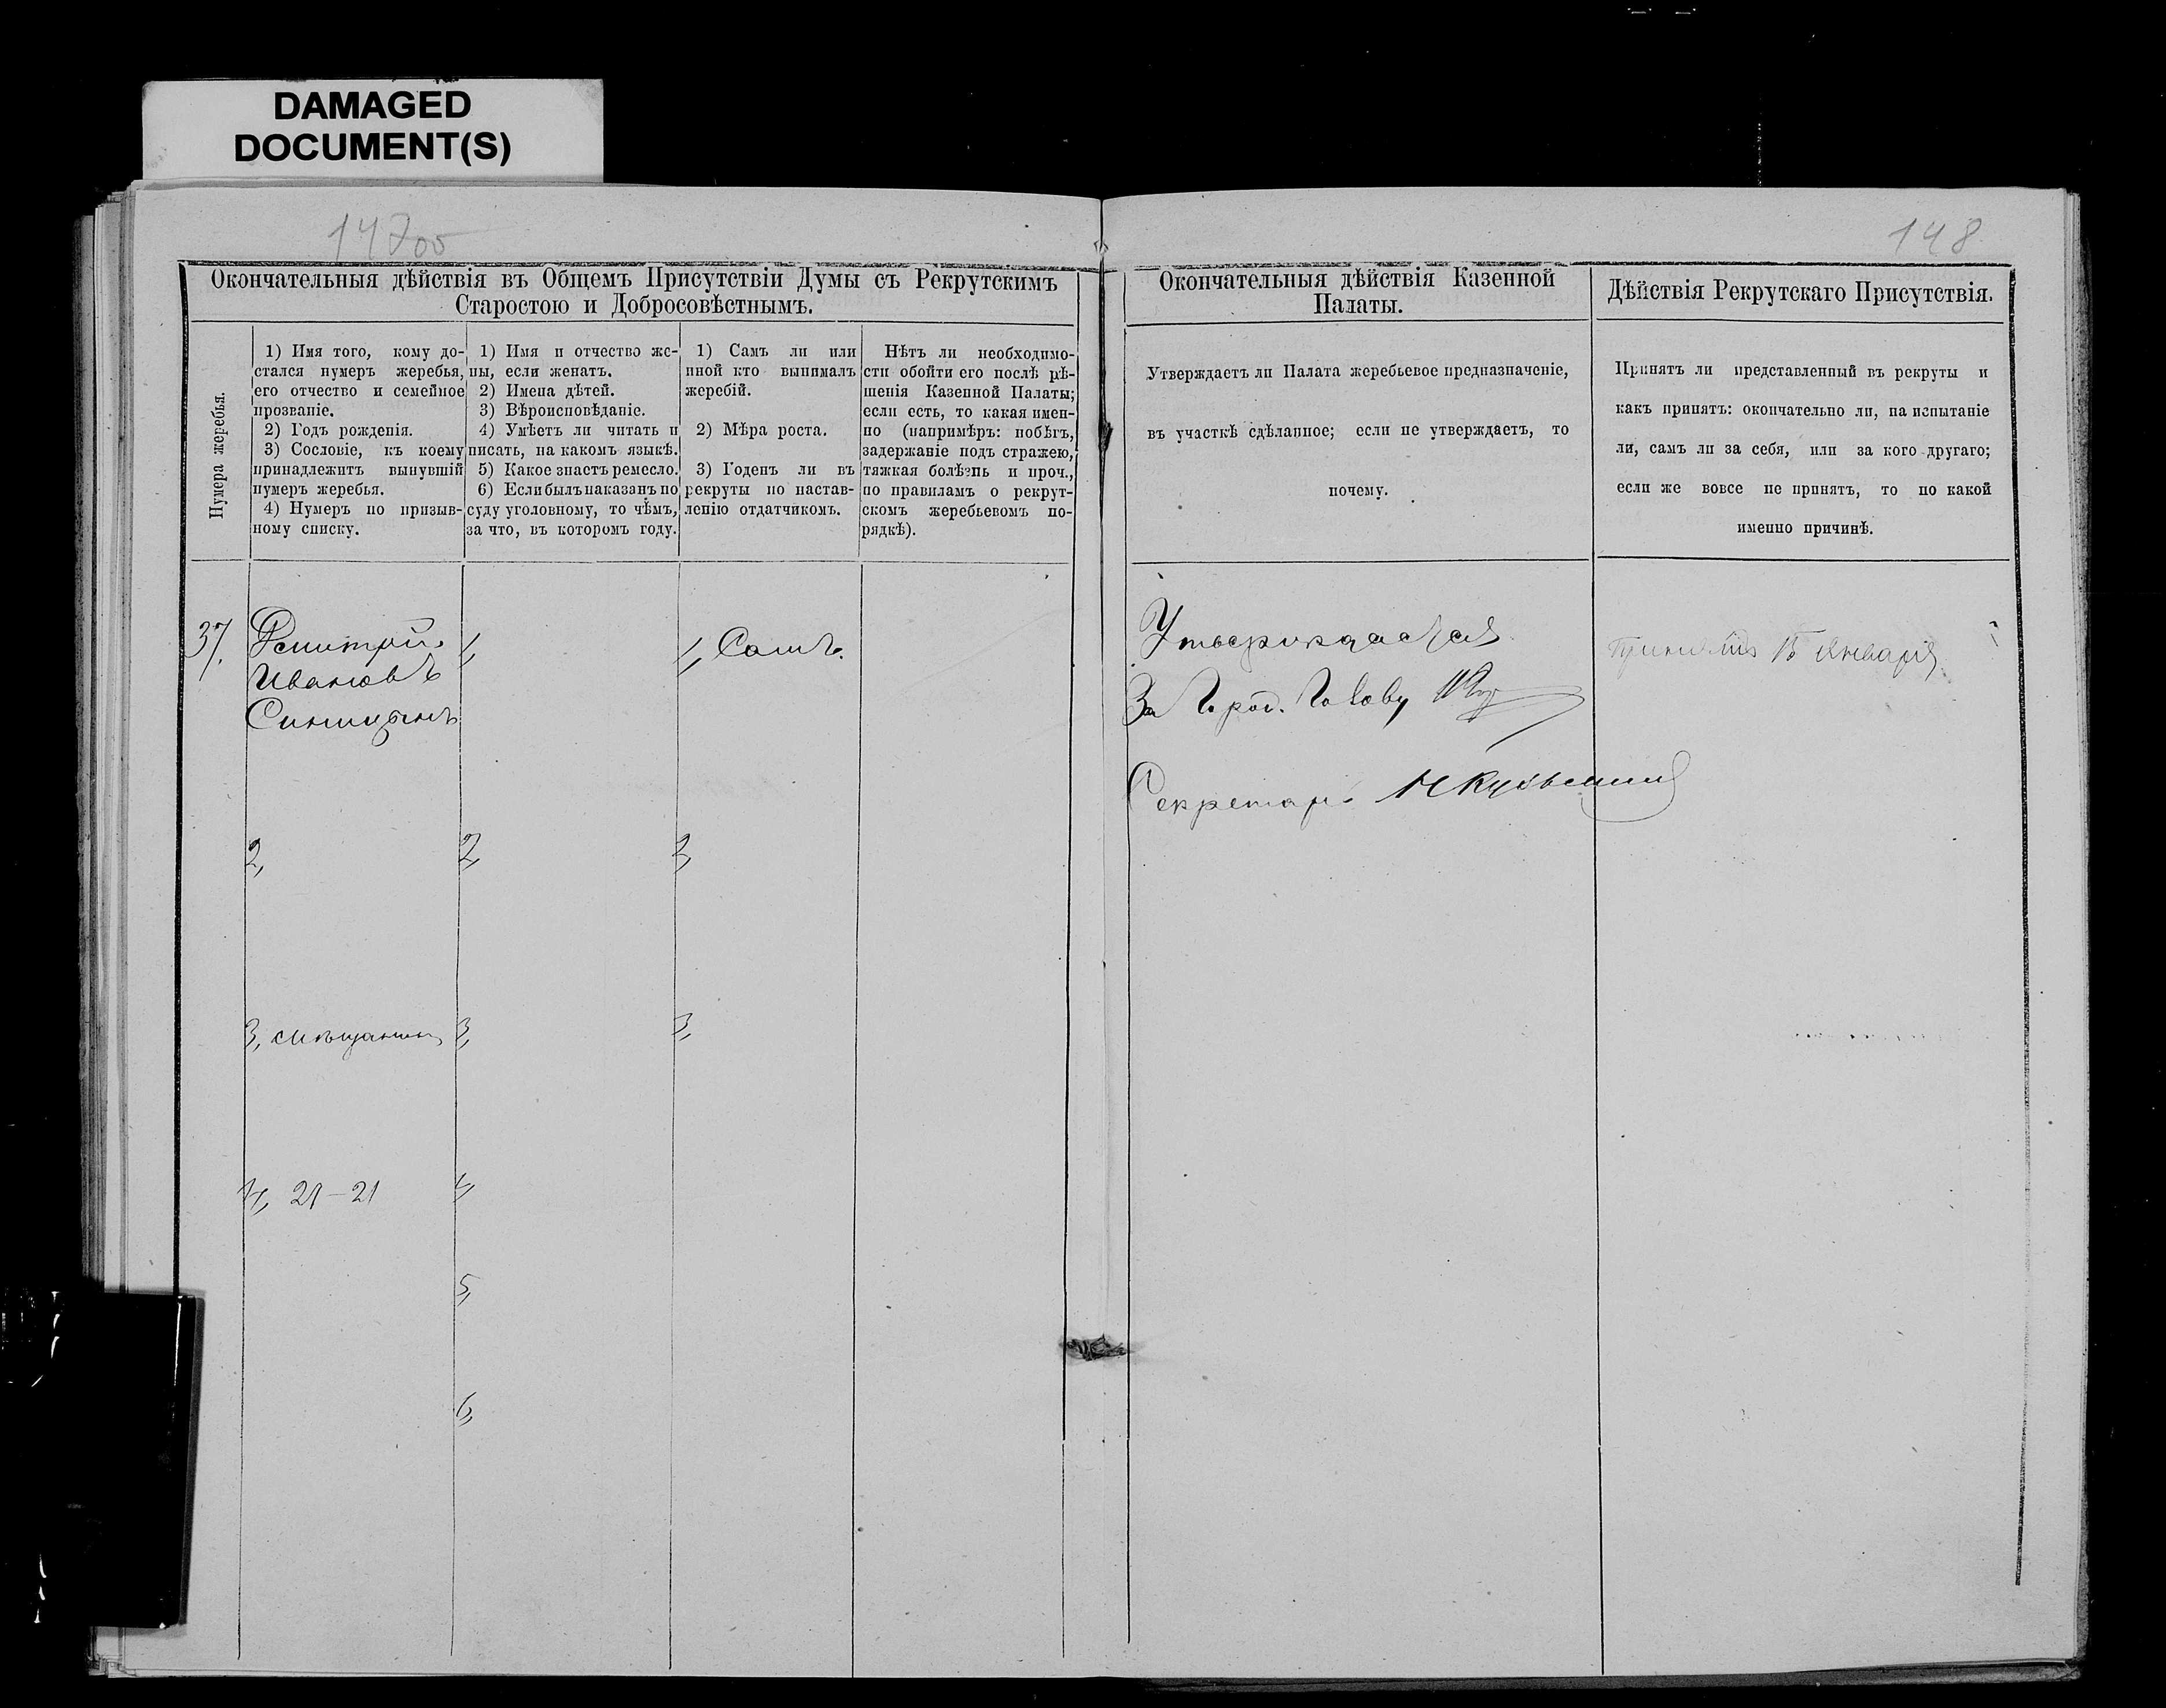 DAMAGED
DOCUMENT(S)
147об
Окончательныя дѣйствія въ Общемъ Присутствіи Думы съ Рекрутскимъ
Старостою и Добросовѣстнымъ.
Нумера жеребья.
1) Имя того, кому до-
стался нумеръ жеребья,
его отчество и семейное
прозваніе.
2) Годъ рожденія.
3) Сословіе, къ коему
принадлежитъ вынувшій
нумеръ жеребья.
4) Нумеръ по призыв-
ному списку.
1) Имя и отчество же-
ны, если женатъ.
2) Имена дѣтей.
3) Вѣроисповѣданіе.
4) Умѣетъ ли читать и
писать, на какомъ языкѣ.
5) Какое знаетъ ремесло.
6) Если былъ наказанъ по
суду уголовному, то чѣмъ,
за что, въ которомъ году.
1) Самъ ли или
иной кто вынималъ
жеребій.
2) Мѣра роста.
3) Годенъ ли въ
рекруты по настав-
ленію отдатчикомъ.
Нѣтъ ли необходимо-
сти обойти его послѣ рѣ-
шенія Казенной Палаты;
если есть, то какая имен-
но (напримѣръ: побѣгъ,
задержаніе подъ стражею,
тяжкая болѣзнь и проч.,
по правиламъ о рекрут-
скомъ жеребьевомъ по-
рядкѣ).
37.
Дмитрій
Ивановъ
Синицынъ
2,
3, мѣщанинъ
4, 21-21
1,
2,
3,
4,
5,
6,
1, Самъ.
2,
3,
148
Окончательныя дѣйствія Казенной
Палаты.
Утверждаетъ ли Палата жеребьевое предназначеніе,
въ участкѣ сдѣланное; если не утверждаетъ, то
почему.
Утверждается
За Город. Голову
Секретарь
Дѣйствія Рекрутскаго Присутствія.
Принятъ ли представленный въ рекруты и
какъ принятъ: окончательно ли, на испытаніе
ли, самъ ли за себя, или за кого другаго;
если же вовсе не принятъ, то по какой
именно причинѣ.
Принятъ 15 Января